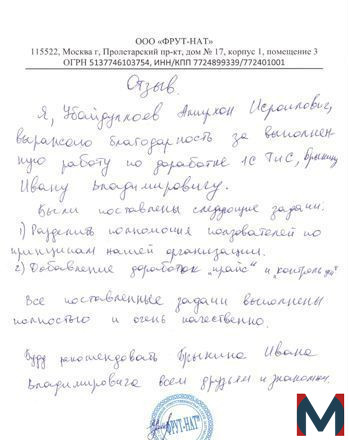 ООО «ФРУТ-НАТ»
115522, Москва г, Пролетарский пр-кт, дом № 17, корпус 1, помещение 3
ОГРН 5137746103754, ИНН/КПП 7724899339/772401001
Отзыв.
Я, Убайдуллоев Амирхон Исроилович,
выражаю благодарность за выполнен-
ную работу по доработке 1С ТиС, Брыкину
Ивану Владимировичу.
Были поставлены следующие задачи:
1) Разделить полномочия пользователей по
принципам нашей организации.
2) Добавление доработок „прайс" и „контроль
Все поставленные задачи выполнены
полностью и очень качественно.
Буду рекомендовать Брыкина Ивана
Владимировича всем друзьям и знакомым.
"ФРУТ-НАТ"
М